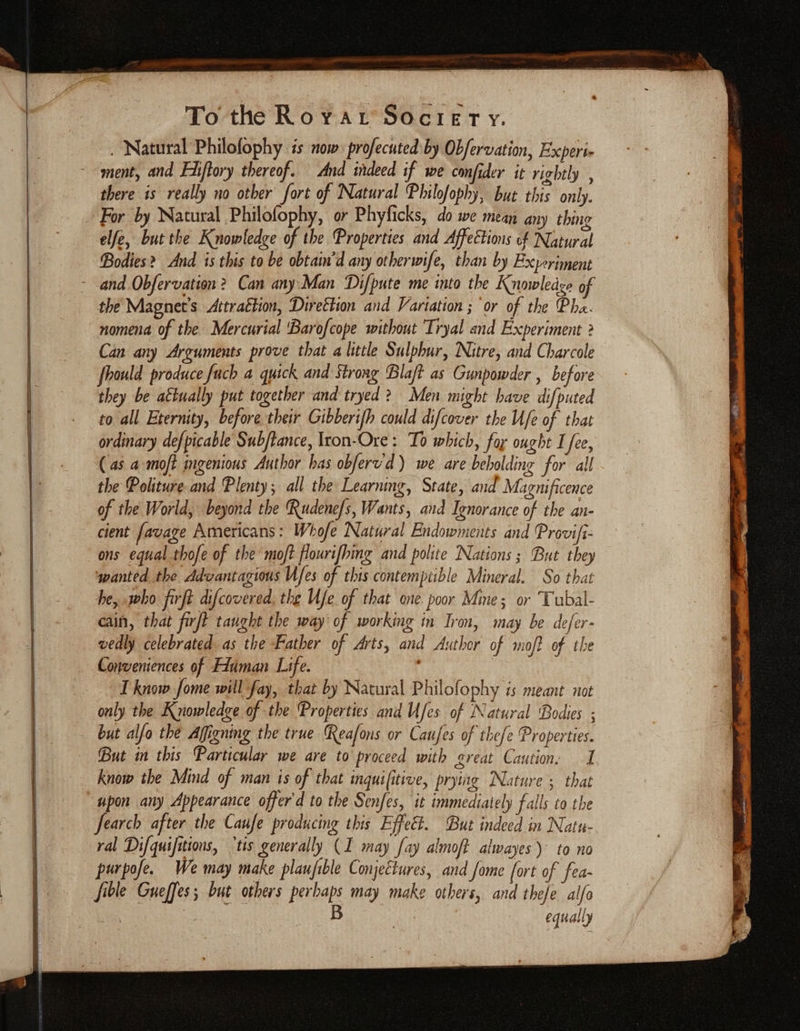 To the ROYAL SOCIETY.
Natural Philoſophy is now proſecuted by Obſervation, Experi-
ment, and Hiſtory thereof. And indeed if we conſider it rightly,
there is really no other ſort of Natural Philoſophy, but this only.
For by Natural Philoſophy, or Phyſicks, do we mean any thing
elſe, but the Knowledge of the Properties and Affections of Natural
Bodies? And is this to be obtain'd any otherwiſe, than by Experiment
and Obſervation? Can any Man Diſpute me into the Knowledge of
the Magnet's Attraction, Direction and Variation; or of the Phæ-
nomena of the Mercurial Baroſcope without Tryal and Experiment?
Can any Arguments prove that a little Sulphur, Nitre, and Charcole
ſhould produce ſuch a quick and Strong Blaſt as Gunpowder, before
they be actually put together and tryed? Men might have diſputed
to all Eternity, before their Gibberiſh could diſcover the Uſe of that
ordinary deſpicable Subſtance, Iron-Ore: To which, for ought I ſee,
(as a moſt ingenious Author has obſerv'd) we are beholding for all
the Politure and Plenty; all the Learning, State, and Magnificence
of the World, beyond the Rudeneſs, Wants, and Ignorance of the an-
cient ſavage Americans: Whoſe Natural Endowments and Proviſi-
ons equal thoſe of the moſt flouriſhing and polite Nations; But they
wanted the Advantagious Uſes of this contemptible Mineral. So that
he, who firſt diſcovered the Uſe of that one poor Mine; or Tubal-
cain, that firſt taught the way of working in Iron, may be deſer-
vedly celebrated as the Father of Arts, and Author of moſt of the
Conveniences of Human Life.
I know ſome will ſay, that by Natural Philoſophy is meant not
only the Knowledge of the Properties and Uſes of Natural Bodies;
but alſo the Aſſigning the true Reaſons or Cauſes of theſe Properties.
But in this Particular we are to proceed with great Caution. I
know the Mind of man is of that inquiſitive, prying Nature; that
upon any Appearance offer'd to the Senſes, it immediately falls to the
ſearch after the Cauſe producing this Effect. But indeed in Natu-
ral Diſquiſitions, 'tis generally (I may ſay almoſt alwayes) to no
purpoſe. We may make plauſible Conjectures, and ſome ſort of fea-
ſible Gueſſes; but others perhaps may make others, and theſe alſo
B equally